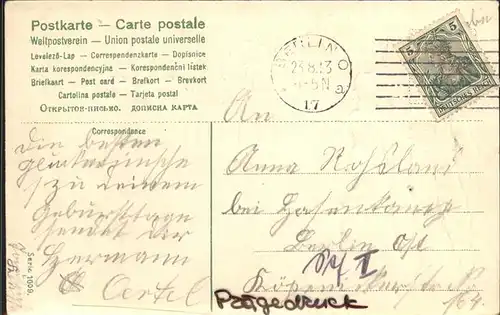 Postkarte — Carte postale
Weltpostverein — Union postale universelle
Levelező-Lap — Correspondenzkarte — Dopisnice
Karta korespondencyjna — Korespondenční lístek
Briefkaart — Post card — Brefkort — Brevkort
Cartolina postale — Tarjeta postal
Открытое письмо. дописна карта
Correspondence
BERLIN O
23.8.13
5-6N
17 a
5 5
DEUTSCHES REICH
An
Die besten
Glückwünsche
zu deinem
Geburtstage
sendet dir
Hermann
Oertel
Serie 1009.
Anna
bei Hasenkamp
Berlin Ost
Köpenickerstraße
164
Pangedruck